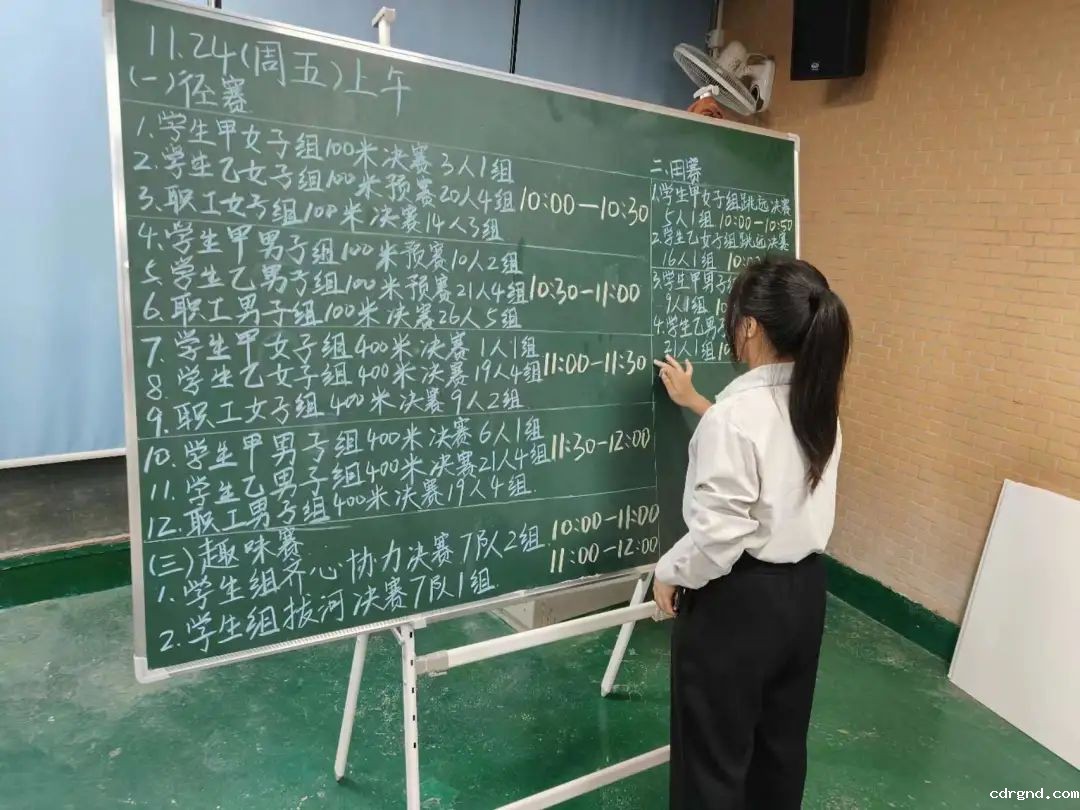 11.24(周五)上午
(一)径赛
1.学生甲女子组100米决赛3人1组
2.学生乙女子组100米预赛20人4组
3.职工女子组100米决赛14人3组
10:00—10:30
4.学生甲男子组100米预赛10人2组
5.学生乙男子组100米预赛21人4组
6.职工男子组100米决赛26人5组
10:30—11:00
7.学生甲女子组400米决赛1人1组
8.学生乙女子组400米决赛19人4组
9.职工女子组400米决赛9人2组
11:00—11:30
10.学生甲男子组400米决赛6人1组
11.学生乙男子组400米决赛21人4组
12.职工男子组400米决赛19人4组.
11:30—12:00
(三)趣味赛
1.学生组齐心协力决赛7队2组.
10:00—11:00
2.学生组拔河决赛7队1组.
11:00—12:00
二.田赛
1.学生甲女子组跳远决赛
5人1组 10:00—10:50
2.学生乙女子组跳远决赛
16人1组 10:
3.学生甲男子组
9人1组 10
4.学生乙男
21人1组 10
cdrgnd.com